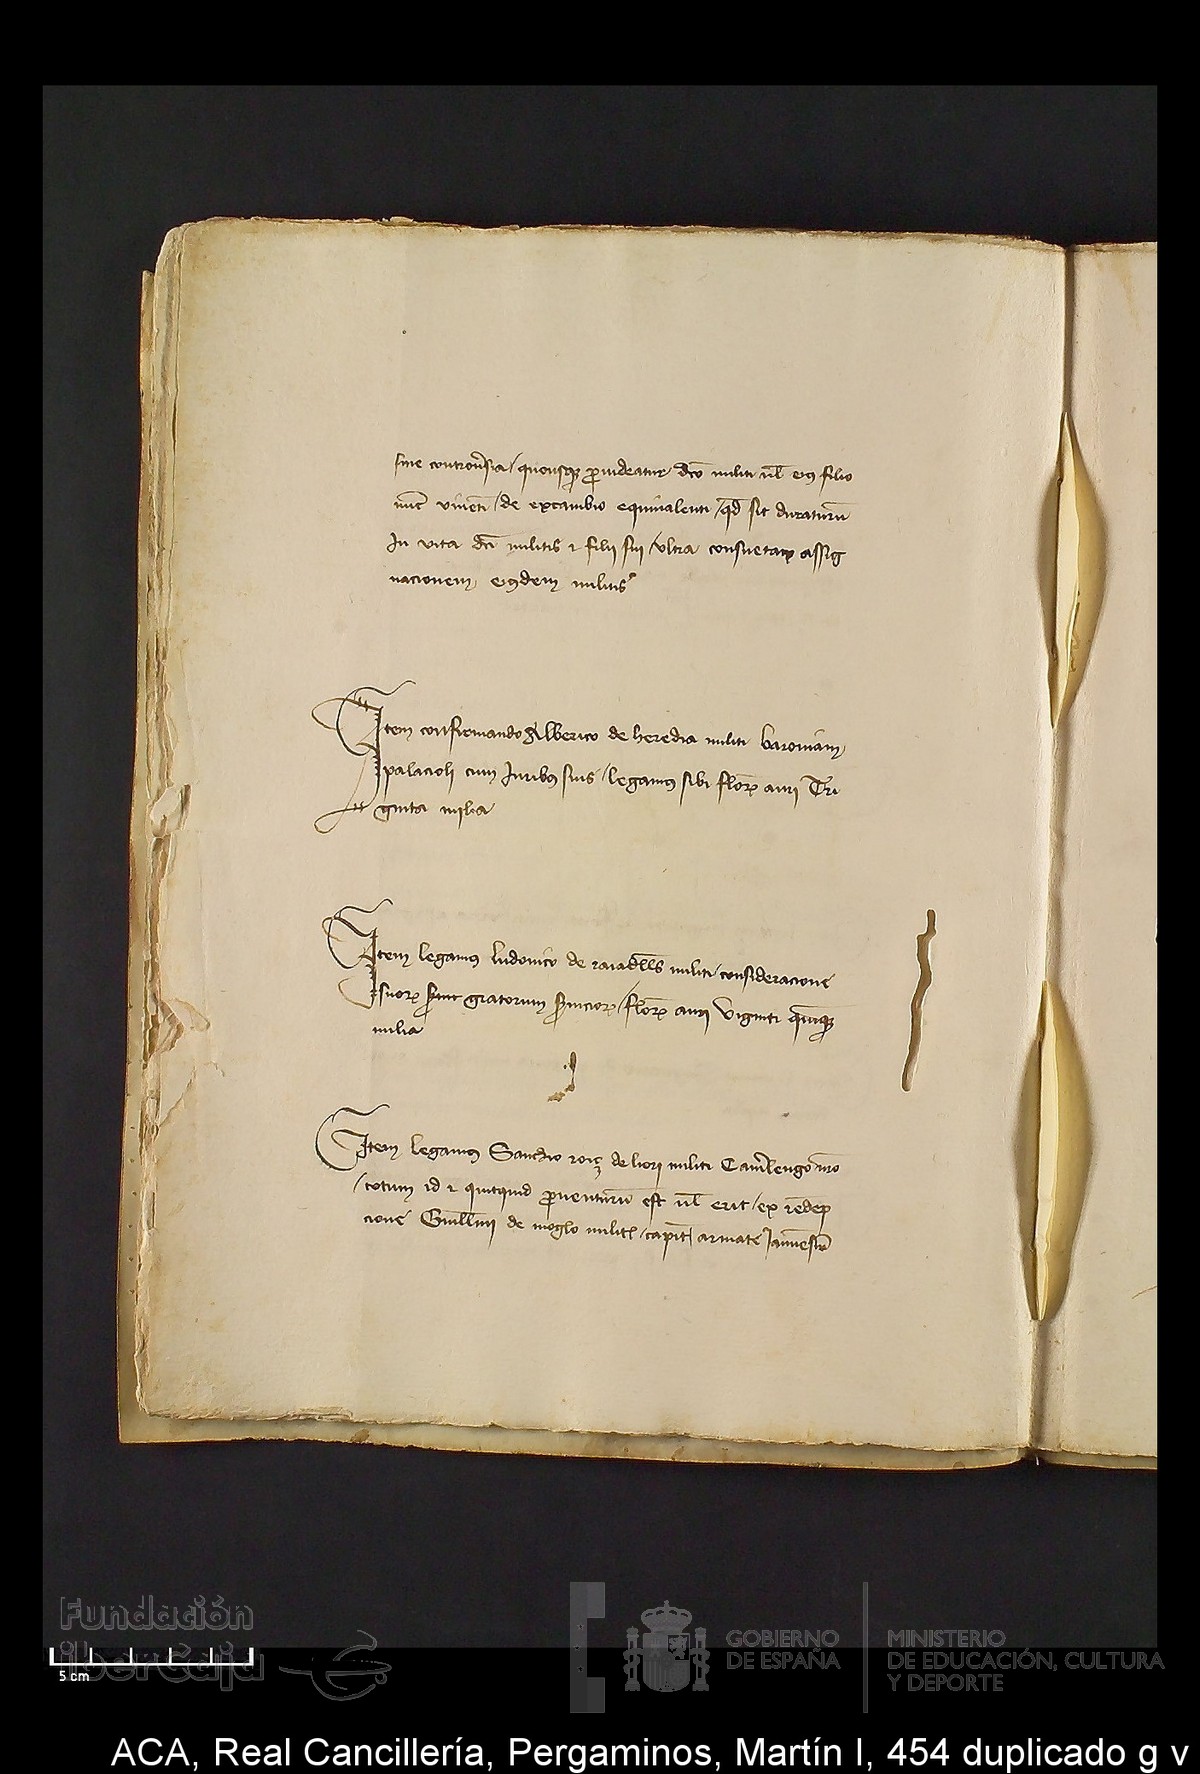 sine controv̄sia / quousq̨ prouideatur dco militi ul̄ eiꝰ filio
nūc viuēti / de excambio equiualenti / qd̄ sit duraturū
In vita dci militis ⁊ filii sui / vltra consuetam assig
nacionem eiꝰdem militis
Item confirmando Alberico de heredia militi baroniam
palacioli cum Iuribꝰ suis / legamꝰ sibi floꝝ auri Tri
ginta milia
Item legamꝰ ludouico de militi consideracione
suoꝝ gratorum s̄uicioꝝ / floꝝ auri viginti quīq̨
milia
Item legamꝰ Sanchio roiç de liori militi Cam̄lengo nr̄o
/ totum id ⁊ quitquid prouenturū est ul̄ erit / ex redēp
cione Guill̄mi de moglo milit̄ / capit̄ armate Ianuēsiū
Fundación
iberCaja
5 cm
GOBIERNO
DE ESPAÑA
MINISTERIO
DE EDUCACIÓN, CULTURA
Y DEPORTE
ACA, Real Cancillería, Pergaminos, Martín I, 454 duplicado g v